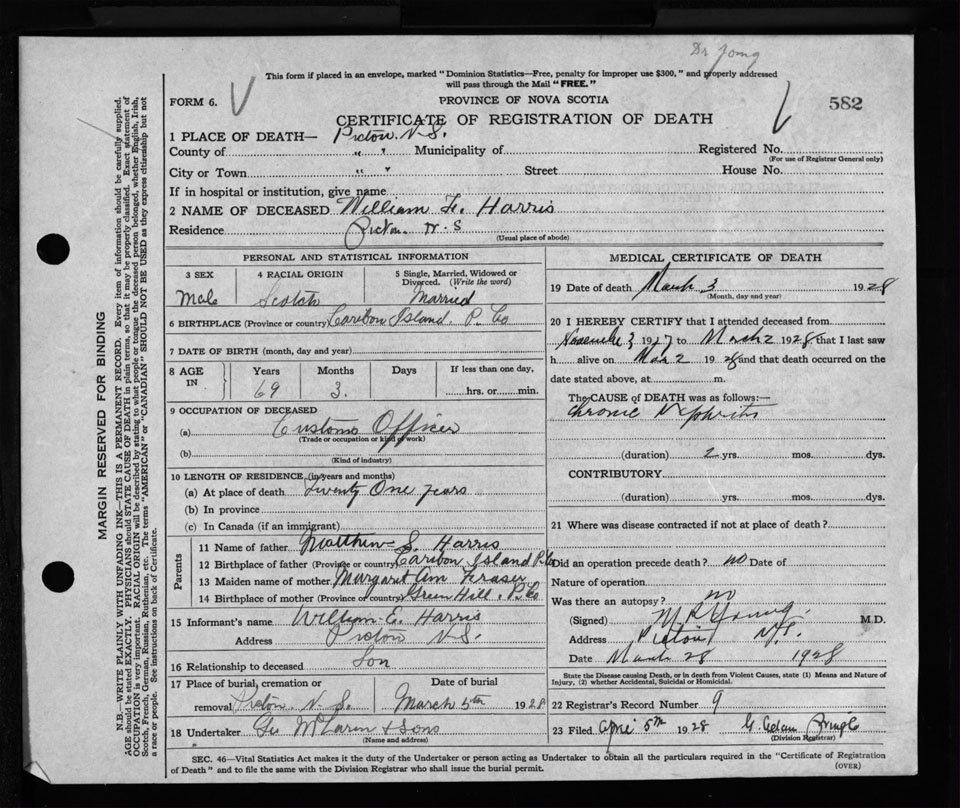 Dr Young
This form if placed in an envelope, marked "Dominion Statistics—Free, penalty for improper use $300," and properly addressed
will pass through the Mail "FREE."
FORM 6.
PROVINCE OF NOVA SCOTIA
582
CERTIFICATE OF REGISTRATION OF DEATH
1 PLACE OF DEATH— Pictou. N.S.
County of " " Municipality of Registered No.
(For use of Registrar General only)
City or Town " " Street House No.
If in hospital or institution, give name
2 NAME OF DECEASED William F. Harris
Residence Pictou. N. S
(Usual place of abode)
PERSONAL AND STATISTICAL INFORMATION
3 SEX 4 RACIAL ORIGIN 5 Single, Married, Widowed or
Divorced. (Write the word)
Male Scotch Married
6 BIRTHPLACE (Province or country) Caribou Island. P. Co
7 DATE OF BIRTH (month, day and year)
8 AGE IN Years Months Days If less than one day,
69 3. hrs. or min.
9 OCCUPATION OF DECEASED
(a) Customs Officer
(Trade or occupation or kind of work)
(b)
(Kind of industry)
10 LENGTH OF RESIDENCE (in years and months)
(a) At place of death Twenty One years
(b) In province
(c) In Canada (if an immigrant)
Parents
11 Name of father Matthew S. Harris
12 Birthplace of father (Province or country) Caribou Island P. Co
13 Maiden name of mother Margaret Ann Fraser
14 Birthplace of mother (Province or country) Green Hill. P. Co
15 Informant's name William E. Harris
Address Pictou N.S.
16 Relationship to deceased Son
17 Place of burial, cremation or Date of burial
removal Pictou. N. S. March 5th 1928
18 Undertaker Geo McLaren & Sons
(Name and address)
MEDICAL CERTIFICATE OF DEATH
19 Date of death March 3 1928
(Month, day and year)
20 I HEREBY CERTIFY that I attended deceased from
November 3 1927 to March 2 1928 that I last saw
h alive on Mch 2 1928 and that death occurred on the
date stated above, at m.
The CAUSE OF DEATH was as follows:—
Chronic Nephritis
(duration) 2 yrs. mos. dys.
CONTRIBUTORY
(duration) yrs. mos. dys.
21 Where was disease contracted if not at place of death?
Did an operation precede death? no Date of
Nature of operation
Was there an autopsy? no
(Signed) Young. M.D.
Address Pictou N.S.
Date March 28 1928
State the Disease causing Death, or in death from Violent Causes, state (1) Means and Nature of
Injury, (2) whether Accidental, Suicidal or Homicidal.
22 Registrar's Record Number 9
23 Filed April 5th 1928 G. Adam Pringle
(Division Registrar)
SEC. 46—Vital Statistics Act makes it the duty of the Undertaker or person acting as Undertaker to obtain all the particulars required in the "Certificate of Registration
of Death" and to file the same with the Division Registrar who shall issue the burial permit.
(OVER)
MARGIN RESERVED FOR BINDING
N.B.—WRITE PLAINLY WITH UNFADING INK—THIS IS A PERMANENT RECORD. Every item of information should be carefully supplied.
AGE should be stated EXACTLY. PHYSICIANS should STATE CAUSE OF DEATH in plain terms, so that it may be properly classified. Exact statement of
OCCUPATION is very important. RACIAL ORIGIN will be described by stating to what people or tongue the deceased person belonged, whether English, Irish,
Scotch, French, German, Russian, Ruthenian, etc. The terms "AMERICAN" or "CANADIAN" SHOULD NOT BE USED as they express citizenship but not
a race or people. See instructions on back of Certificate.